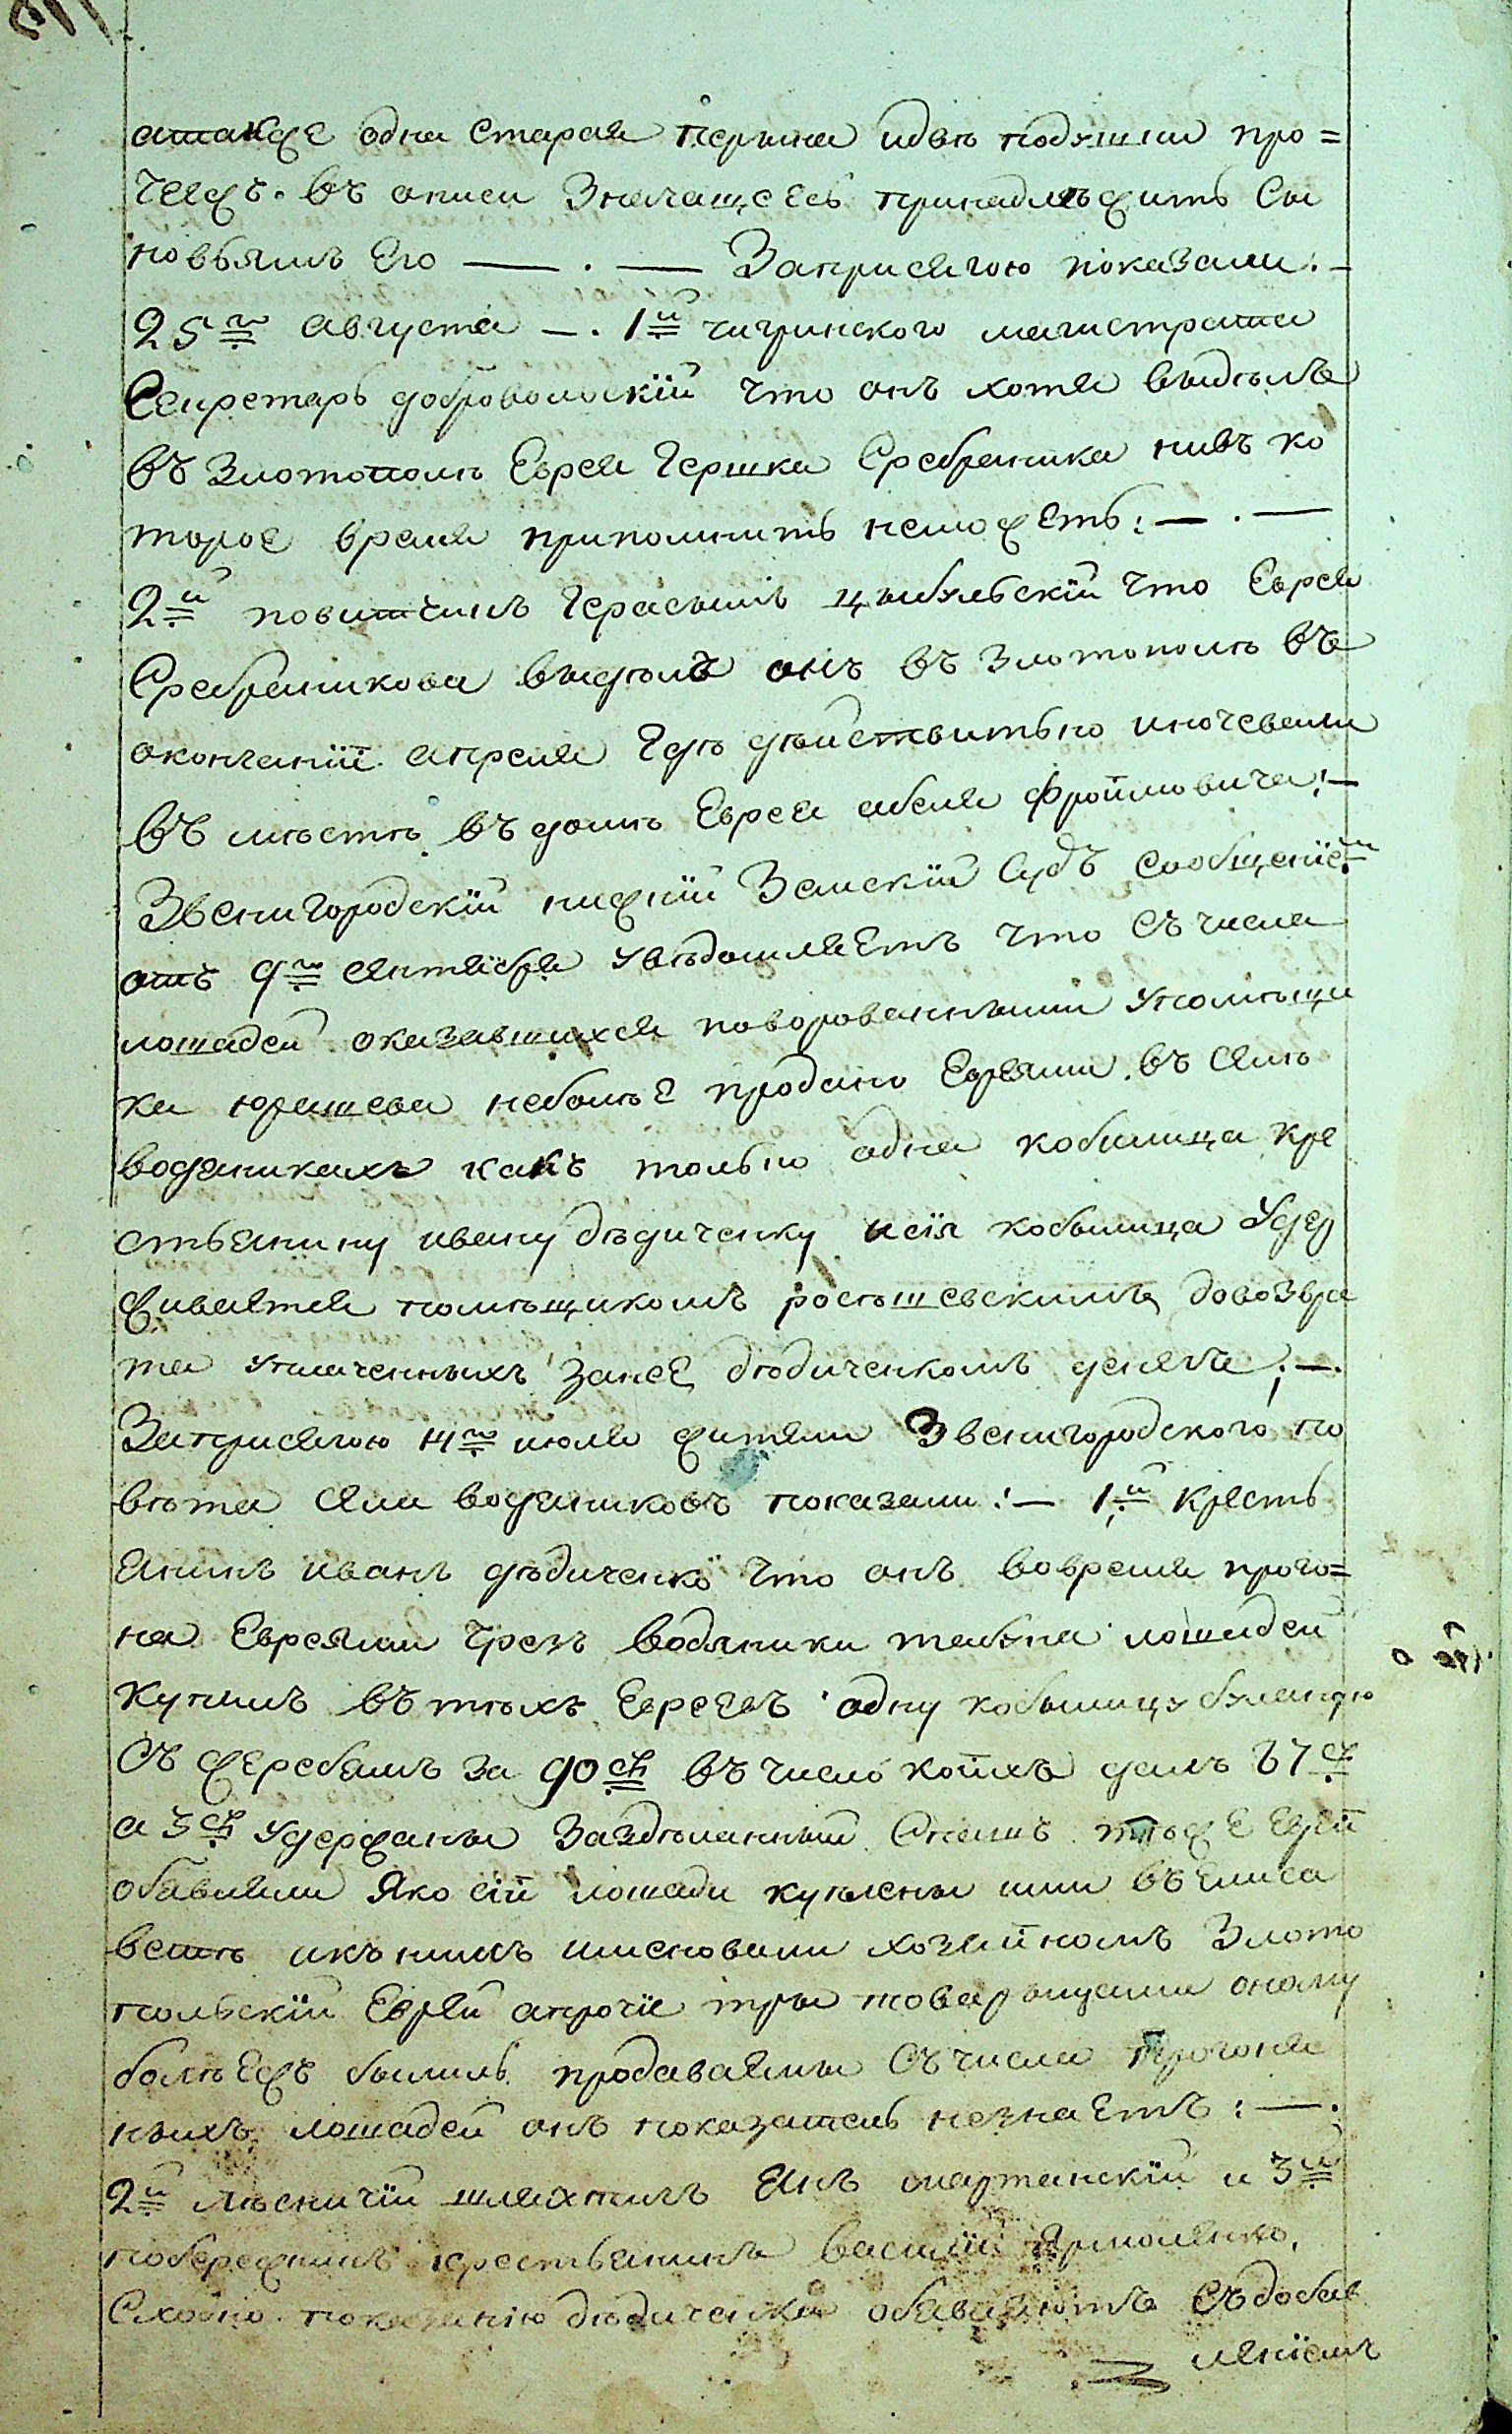 атакже одна старая перина идвѣ подушки про=
чеежъ въ описи значащееся принадлежитъ сы
новьямъ его — . — Заприсягою показали: —
25го августа —. 1й чигринского магистрата
Секретарь добровольскій что онъ хотя видѣлъ
въ Златополѣ Еврея Гершка Сребреника нивъ ко
торое время припомнить неможетъ: — . —
2й повитчикъ Герасимъ цыбульскій что Еврея
Сребреникова видѣлъ онъ въ Златополѣ въ
окончаніи апреля гдѣ дѣйствитьно иночевали
въ мѣстѣ въ домѣ Еврея абеля Фроимовича: —
Звенигородскій нижній Земскій Судъ сообщеніемъ
отъ 9го сентября увѣдомляетъ что съ числа
лошадей оказавшихся поворованными упомѣщи
ка юрашева небольѣ продано Евреями въ селѣ
водяникахъ какъ только одна кобилица кре
стьянину ивану дѣдиченку исія кобылица удер
живается помѣщикомъ ростишевскимъ довозвра
та уплаченныхъ занеѣ дѣдиченкомъ денегъ; —.
Заприсягою 14го июля жители Звенигородского по
вѣта села водяниковъ показали: — 1й кресть
янинъ иванъ дѣдиченко что онъ вовремя прого=
на Евреями чрезъ водяники табуна лошадей
купилъ въ тѣхъ Евреевъ одну кобылицу буланую
Съ жеребямъ за 90 ср въ число коихъ далъ 87 ср
а 3 ср удержаны заздѣланный тѣже Еврей
обявляли яко сіи лошади куплены ими въ Елиса
ветѣ икъ нимъ именовали хозяйномъ Злато
польскій Еврей апрочіе три товарыщами оному
болѣежъ былиль продаваемы Съ числа прогоняе
ныхъ лошадей онъ показатель незнаетъ: —.
2й лѣсничій шляхтичъ янъ мартанскій и 3й
побережникъ крестьянинъ василій Ярмоленко,
Сходно показанію дѣдиченка обявляютъ Съ добав
леніемъ